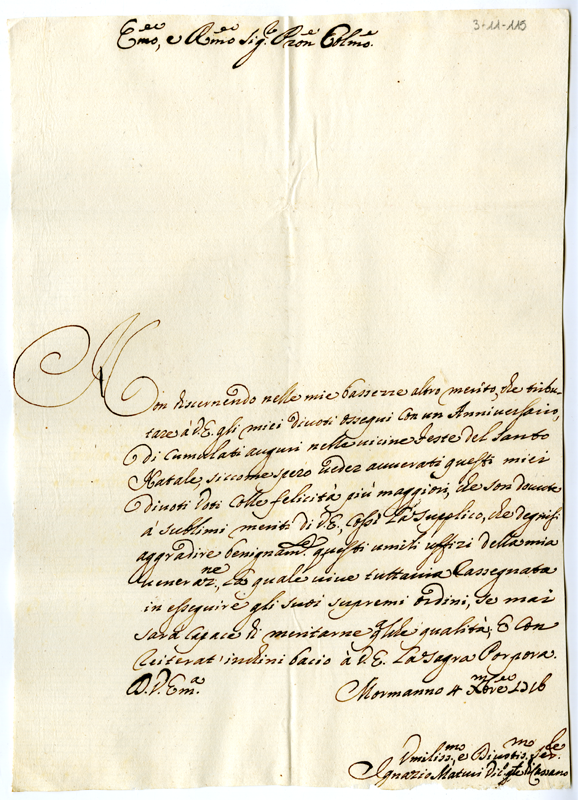 3-11-115
E.mo, e R.mo Sig.re Pron Colmo.
Non discernendo nelle mie bassezze altro merito, che tribu-
tare à V.E. gli miei divoti ossequi con un Anniversario,
di cumulati auguri nella vicine feste del Santo
Natale, siccome spero veder avverati questi miei
divoti voti colle felicità più maggiori, che son dovute
a' sublimi meriti di V.E., Così La supplico, che degnisi
aggradire benignam.te questi umili uffizi della mia
veneraz.ne, La quale vive tuttavia rassegnata
in esseguire gli suoi supremi ordini, se mai
sarà capace di meritarne q.lche qualità, E con
reiterat' inchini bacio à V.E. La Sagra Porpora.
D.V.Em.a
Mormanno 4 Xbre 1716
Umiliss.mo, e Divotis.mo Ser.
Ignazio Maturi Vic.º g.le di Cassano